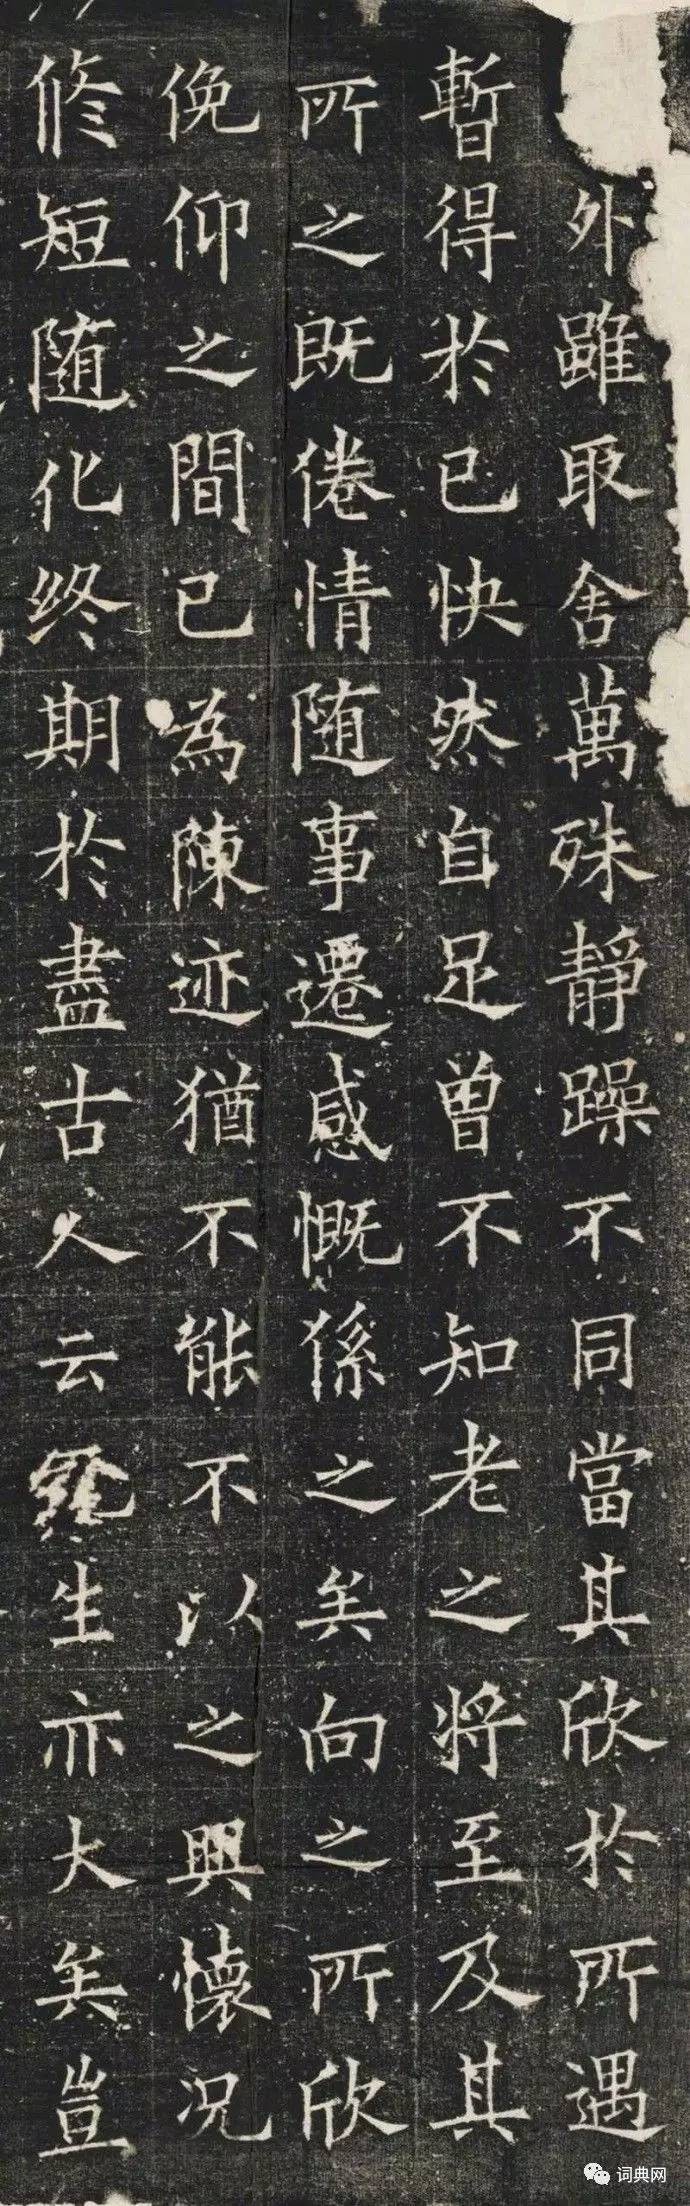 外雖取舍萬殊靜躁不同當其欣於所遇
暫得於己快然自足曾不知老之將至及其
所之既倦情随事遷感慨係之矣向之所欣
俛仰之間已為陳迹猶不能不以之興懷况
修短随化终期於盡古人云死生亦大矣豈
词典网